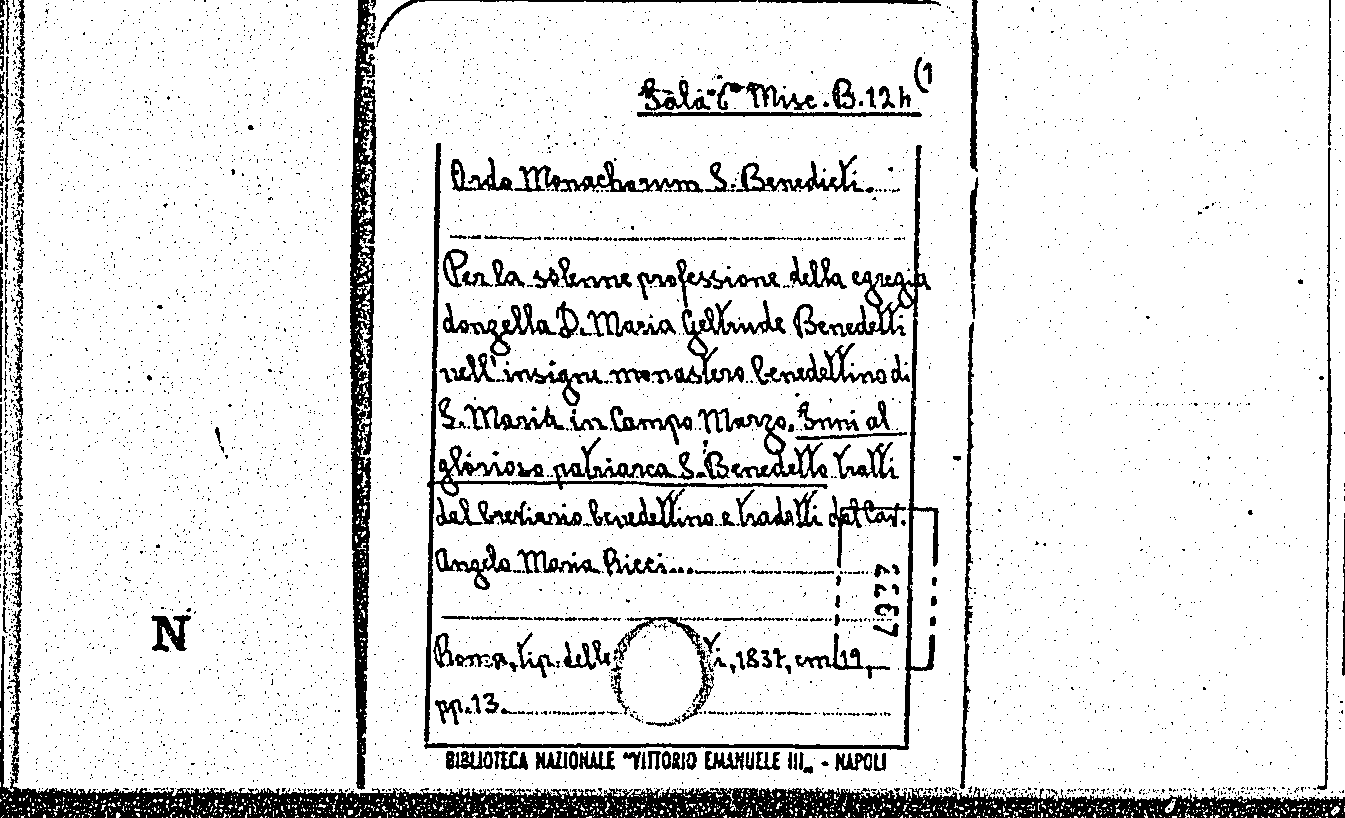 Sala 6ª Misc. B. 12 h (1
Ordo Monachorum S. Benedicti.
Per la solenne professione della egregia
donzella D. Maria Geltrude Benedetti
nell'insigne monastero benedettino di
S. Maria in Campo Marzo. Inni al
glorioso patriarca S. Benedetto tratti
dal breviario benedettino e tradotti dal Cav.
Angelo Maria Ricci...
Roma, tip. delle ti, 1837, cm 19,
pp. 13.
N
BIBLIOTECA NAZIONALE "VITTORIO EMANUELE III„ - NAPOLI